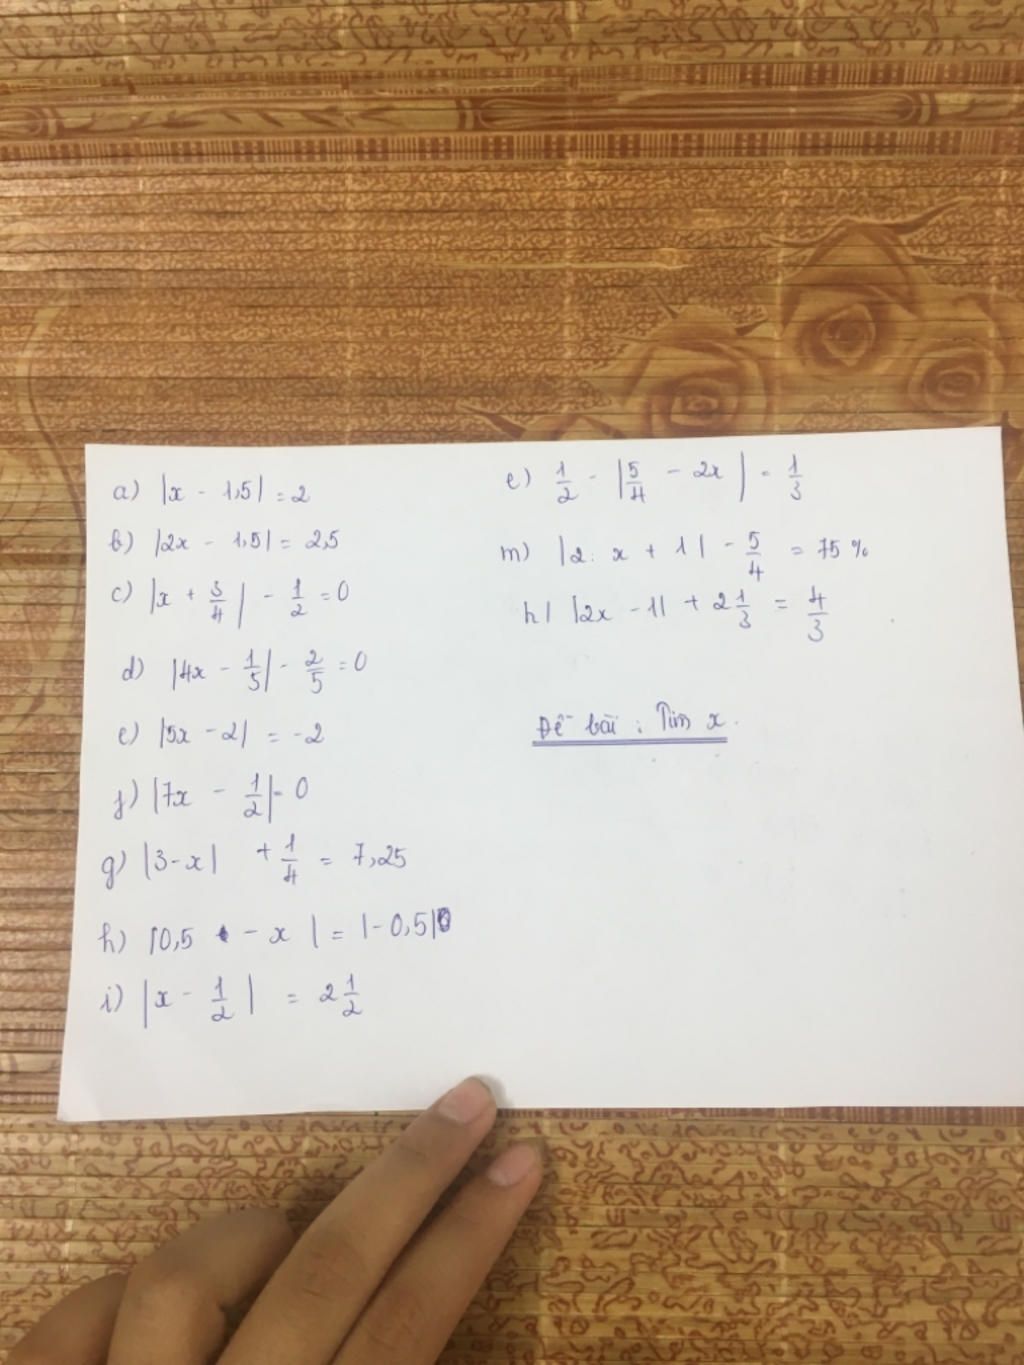 a) |x - 1,5| = 2
b) |2x - 1,5| = 2,5
c) |x + 3/4| - 1/2 = 0
d) |4x - 1/5| - 2/5 = 0
e) |5x - 2| = -2
f) |7x - 1/2| = 0
g) |3 - x| + 1/4 = 7,25
h) |0,5 - x| = |-0,5|
i) |x - 1/2| = 2 1/2
e) 1/2 - |5/4 - 2x| = 1/3
m) |2. x + 1| - 5/4 = 75 %
h) |2x - 1| + 2 1/3 = 4/3
Đề bài : Tìm x.